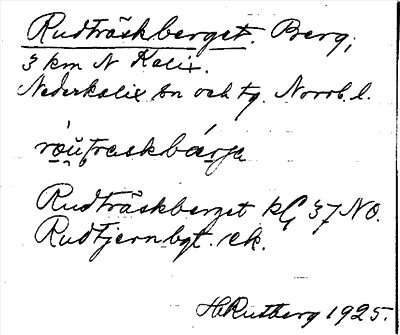 Rudträskberget. Berg;
3 km N Kalix.
Nederkalix sn och tg. Norrb. l.
ròu̯traskbárja
Rudträskberget kG 37 NO.
Rudtjernbgt. ek.
H Rutberg 1925.